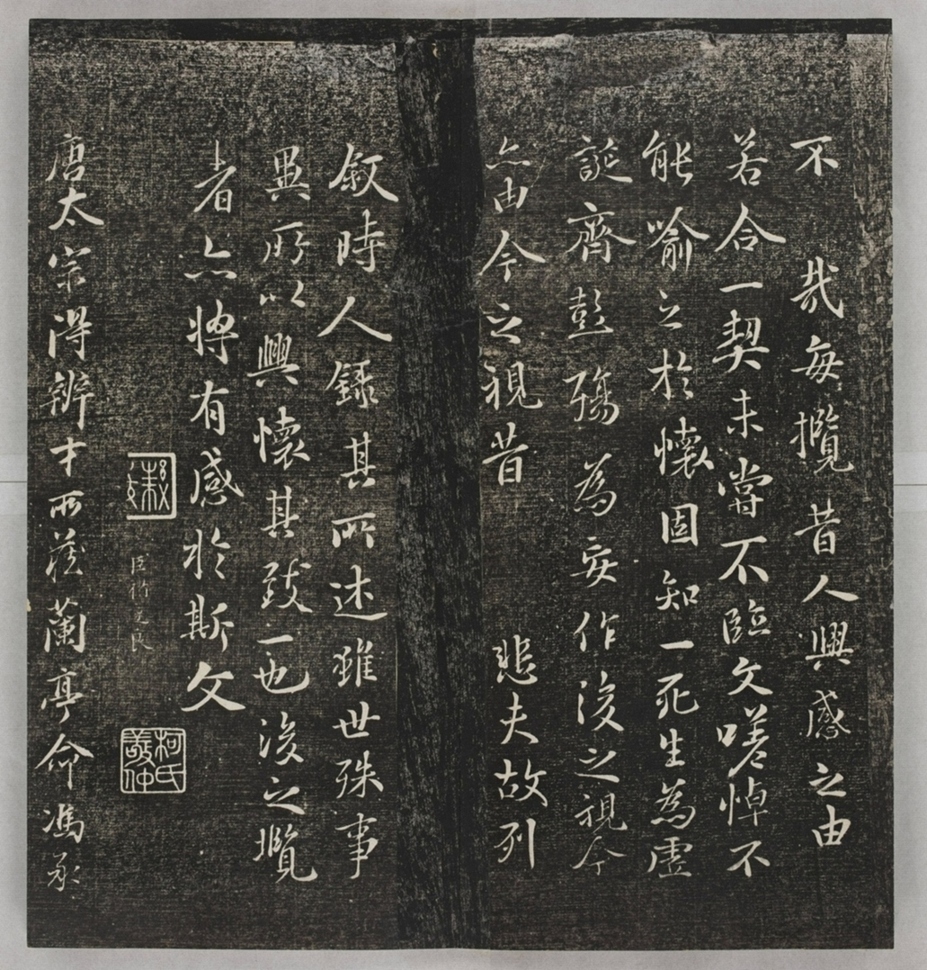 不 哉每攬昔人興感之由
若合一契未嘗不臨文嗟悼不
能喻之於懷固知一死生為虛
誕齊彭殤為妄作後之視今
亦由今之視昔 悲夫故列
叙時人錄其所述雖世殊事
異所以興懷其致一也後之攬
者亦將有感於斯文
柯氏敬仲
唐太宗得辨才所藏蘭亭命馮承